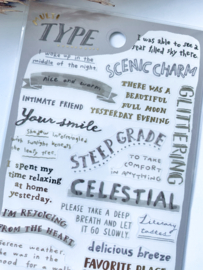 TYPE
I was able to see a
star filled sky there.
I woke up in the
middle of the night.
SCENIC CHARM
nice and warm
THERE WAS A
BEAUTIFUL
FULL MOON
YESTERDAY EVENING
GLITTERING
INTIMATE FRIEND
Your smile
STEEP GRADE
TO TAKE
COMFORT
IN ANYTHING
I spent my
time relaxing
at home
yesterday.
CELESTIAL
I'M REJOICING
FROM THE HEART
PLEASE TAKE A DEEP
BREATH AND LET
IT GO SLOWLY.
delicious breeze
FAVORITE PLACE
Serene weather.